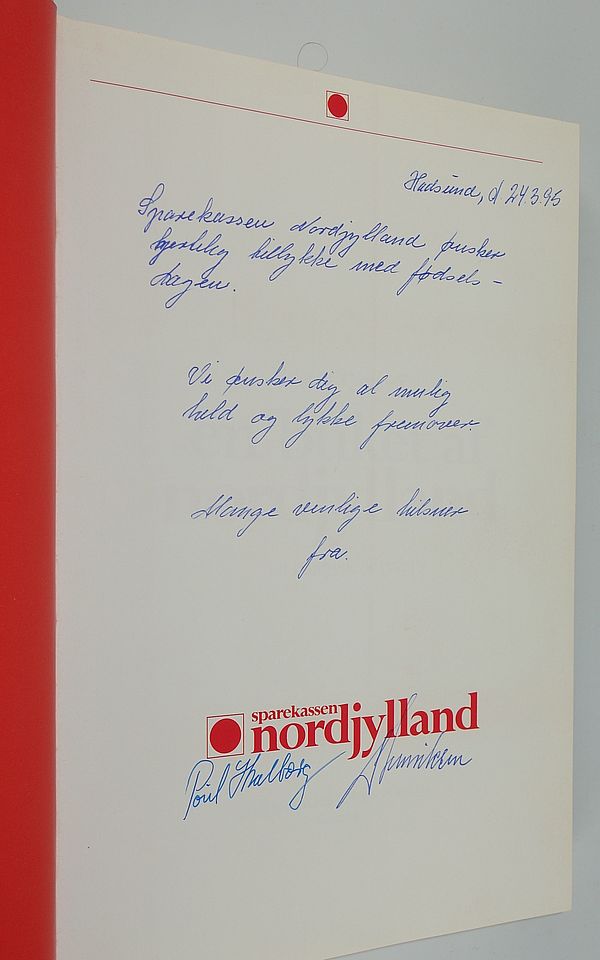 Hadsund, d. 24.3.95
Sparekassen Nordjylland ønsker
hjertelig tillykke med fødsels-
dagen.
Vi ønsker dig al mulig
held og lykke fremover.
Mange venlige hilsner
fra.
sparekassen
nordjylland
Poul